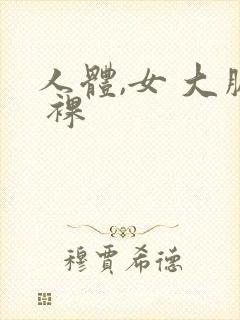 人體,女 大
裸
穆賈希德